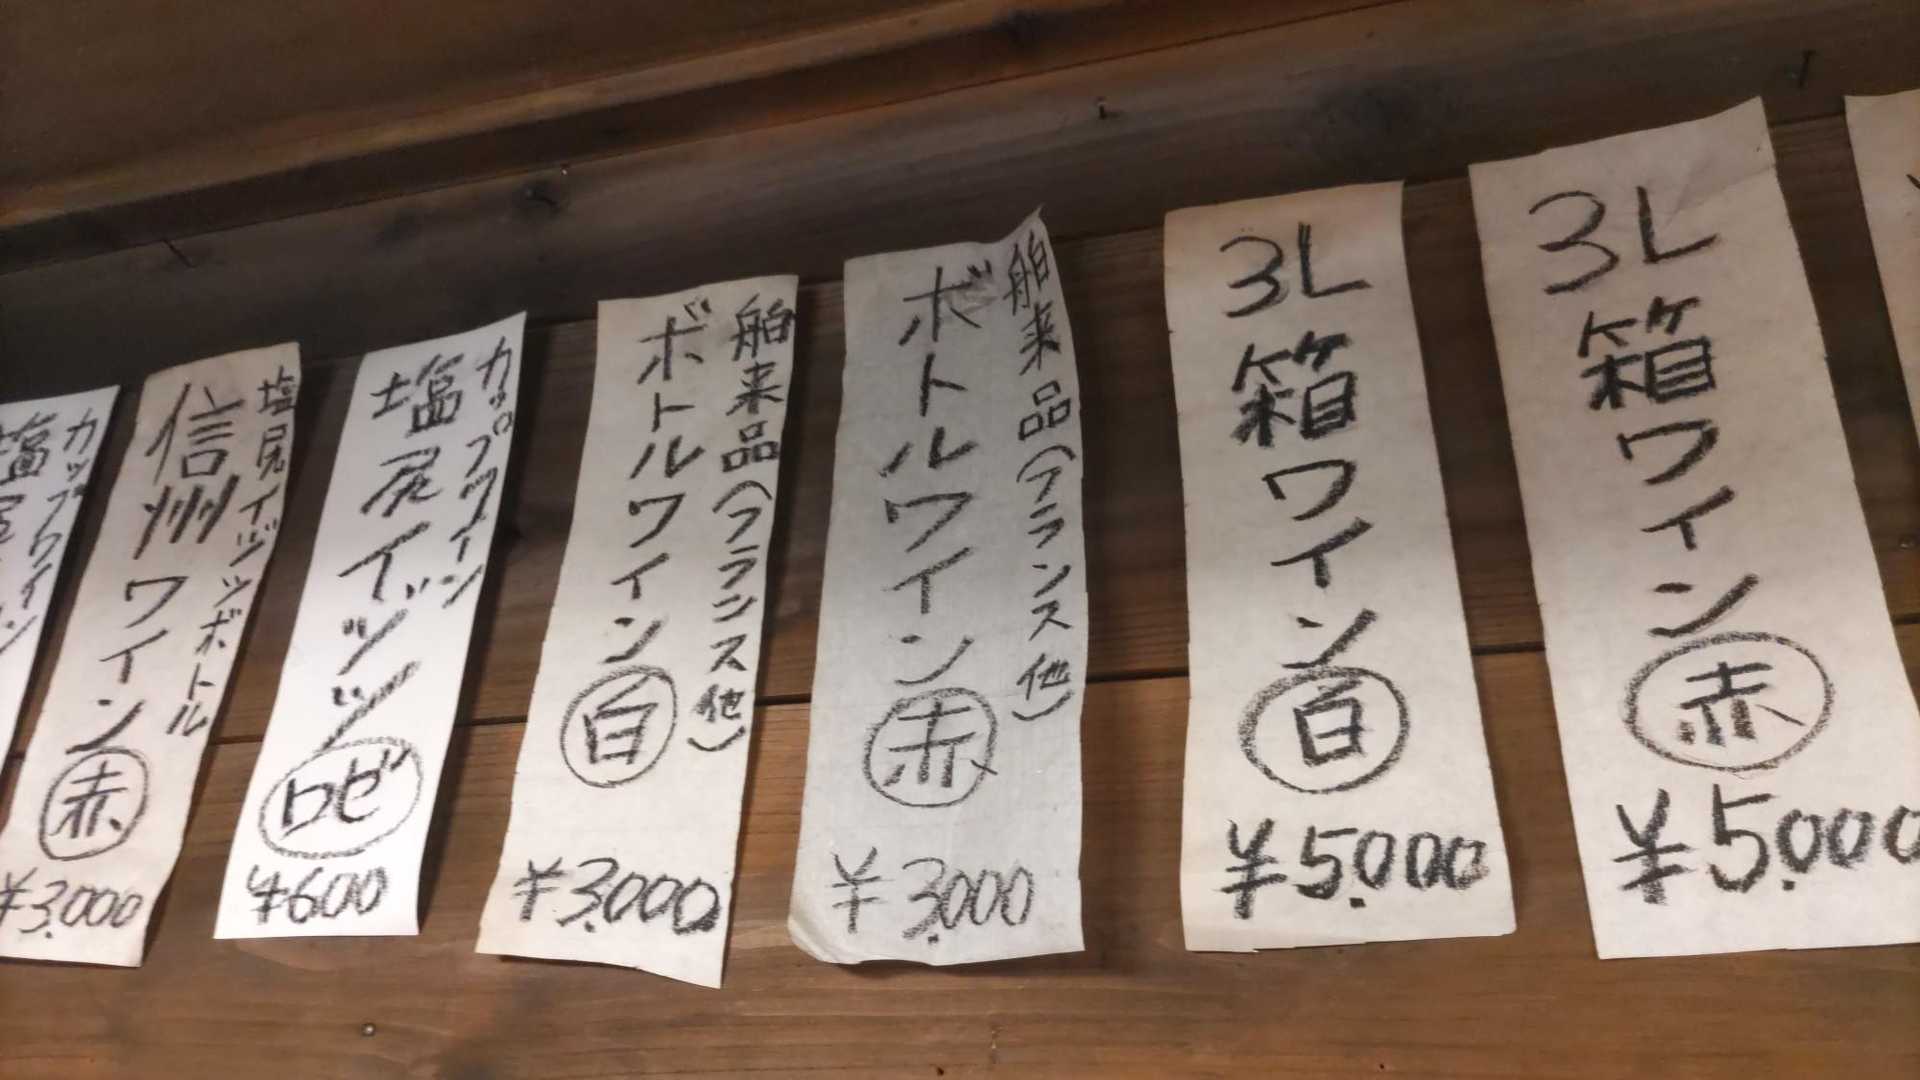 3L箱ワイン
赤
¥5.000
3L箱ワイン
白
¥5.000
舶来品(フランス他)
ボトルワイン
赤
¥3.000
舶来品(フランス他)
ボトルワイン
白
¥3.000
カップワイン
塩尻イヅツ
ロゼ
¥600
塩尻イヅツボトル
信州ワイン
赤
¥3.000
カップワイン
塩尻